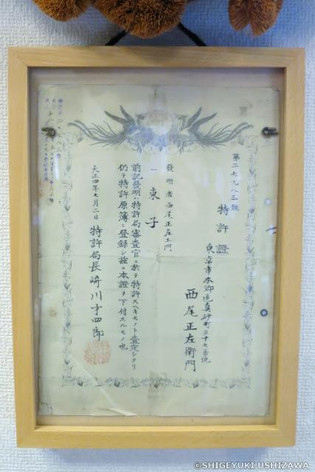 第二七九八三號
特許證
東京市本郷區真砂町三十七番地
西尾正左衛門
發明者 西尾正左エ門
一 束子
前記發明ハ特許局審査官ニ於テ特許スヘキモノト査定シタリ
仍テ特許原簿ニ登録シ茲ニ本證ヲ下付スルモノ也
大正四年七月二日
特許局長崎川才四郎
©SHIGEYUKI USHIZAWA